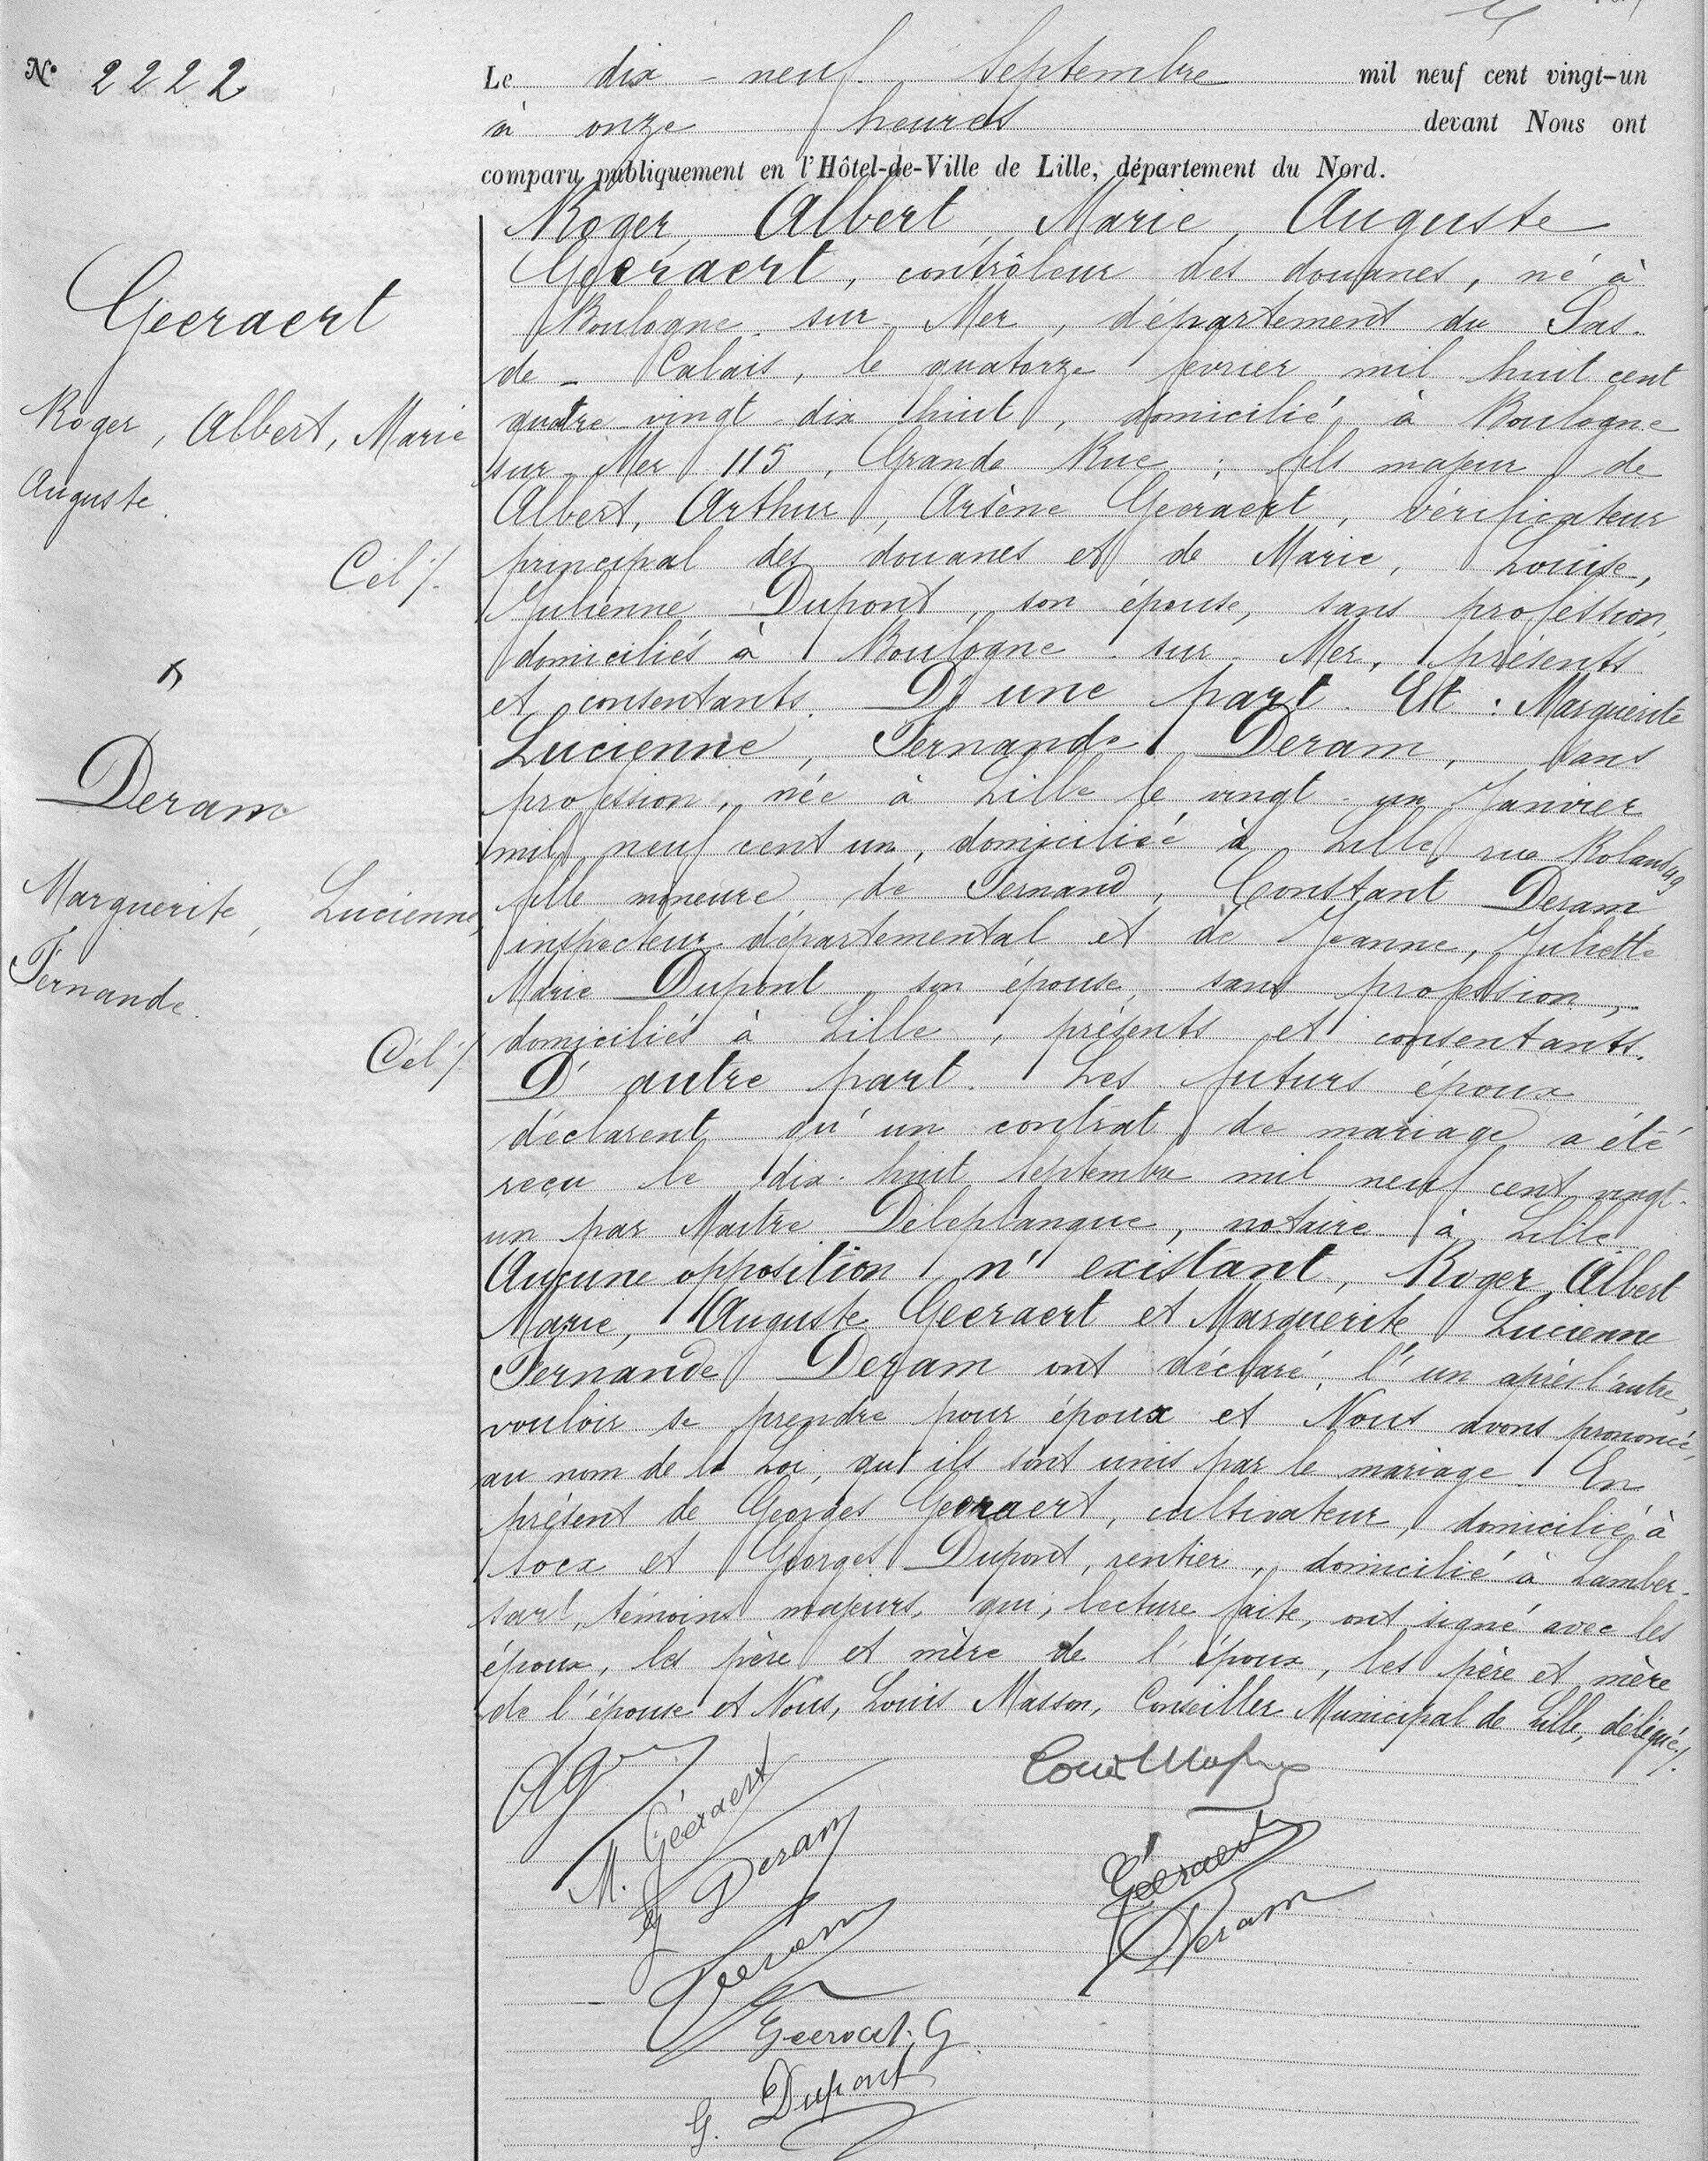 N° 2222
Geeraert
Roger, Albert, Marie
Auguste.
Cél
&
Deram
Marguerite, Lucienne,
Fernande.
Cél
Le dix-neuf Septembre mil neuf cent vingt-un
à onze heures devant Nous ont
comparu publiquement en l'Hôtel-de-Ville de Lille, département du Nord.
Roger, Albert, Marie, Auguste
Geeraert, contrôleur des douanes, né à
Boulogne-sur-Mer, département du Pas-
de-Calais, le quatorze février mil huit cent
quatre vingt dix huit, domicilié à Boulogne
sur-Mer 115, Grande Rue ; fils majeur de
Albert, Arthur, Arsène Geeraert, vérificateur
principal des douanes et de Marie, Louise,
Julienne Dupont, son épouse, sans profession,
domiciliés à Boulogne-sur-Mer, présents
et consentants. D'une part. Et : Marguerite
Lucienne, Fernande Deram, sans
profession, née à Lille le vingt-un Janvier
mil neuf cent un, domiciliée à Lille, rue Roland 49
fille mineure de Fernand, Constant Deram
inspecteur départemental et de Jeanne, Juliette
Marie Dupont, son épouse, sans profession,
domiciliés à Lille, présents et consentants.
D'autre part. Les futurs époux
déclarent qu'un contrat de mariage a été
reçu le dix-huit Septembre mil neuf cent vingt-
un par Maître Deleplanque, notaire à Lille
Aucune opposition n'existant, Roger, Albert
Marie, Auguste Geeraert et Marguerite Lucienne
Fernande Deram ont déclaré, l'un après l'autre,
vouloir se prendre pour époux et Nous avons prononcé,
au nom de la Loi, qu'ils sont unis par le mariage. En
présent de Georges Geeraert, cultivateur, domicilié à
Socx et Georges Dupont, rentier, domicilié à Lamber-
sart, témoins majeurs, qui, lecture faite, ont signé avec les
époux, les père et mère de l'époux, les père et mère
de l'épouse et Nous, Louis Masson, Conseiller Municipal de Lille, délégué./.
Louis Masson
M. Géeraert
Deram
Géeraert
Deram
Deram
Geeraert. G.
G. Dupont